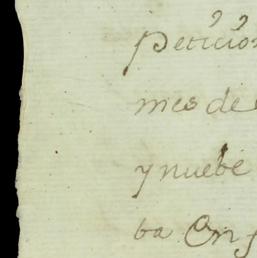 Peticion
mes de
y nuebe
ba en